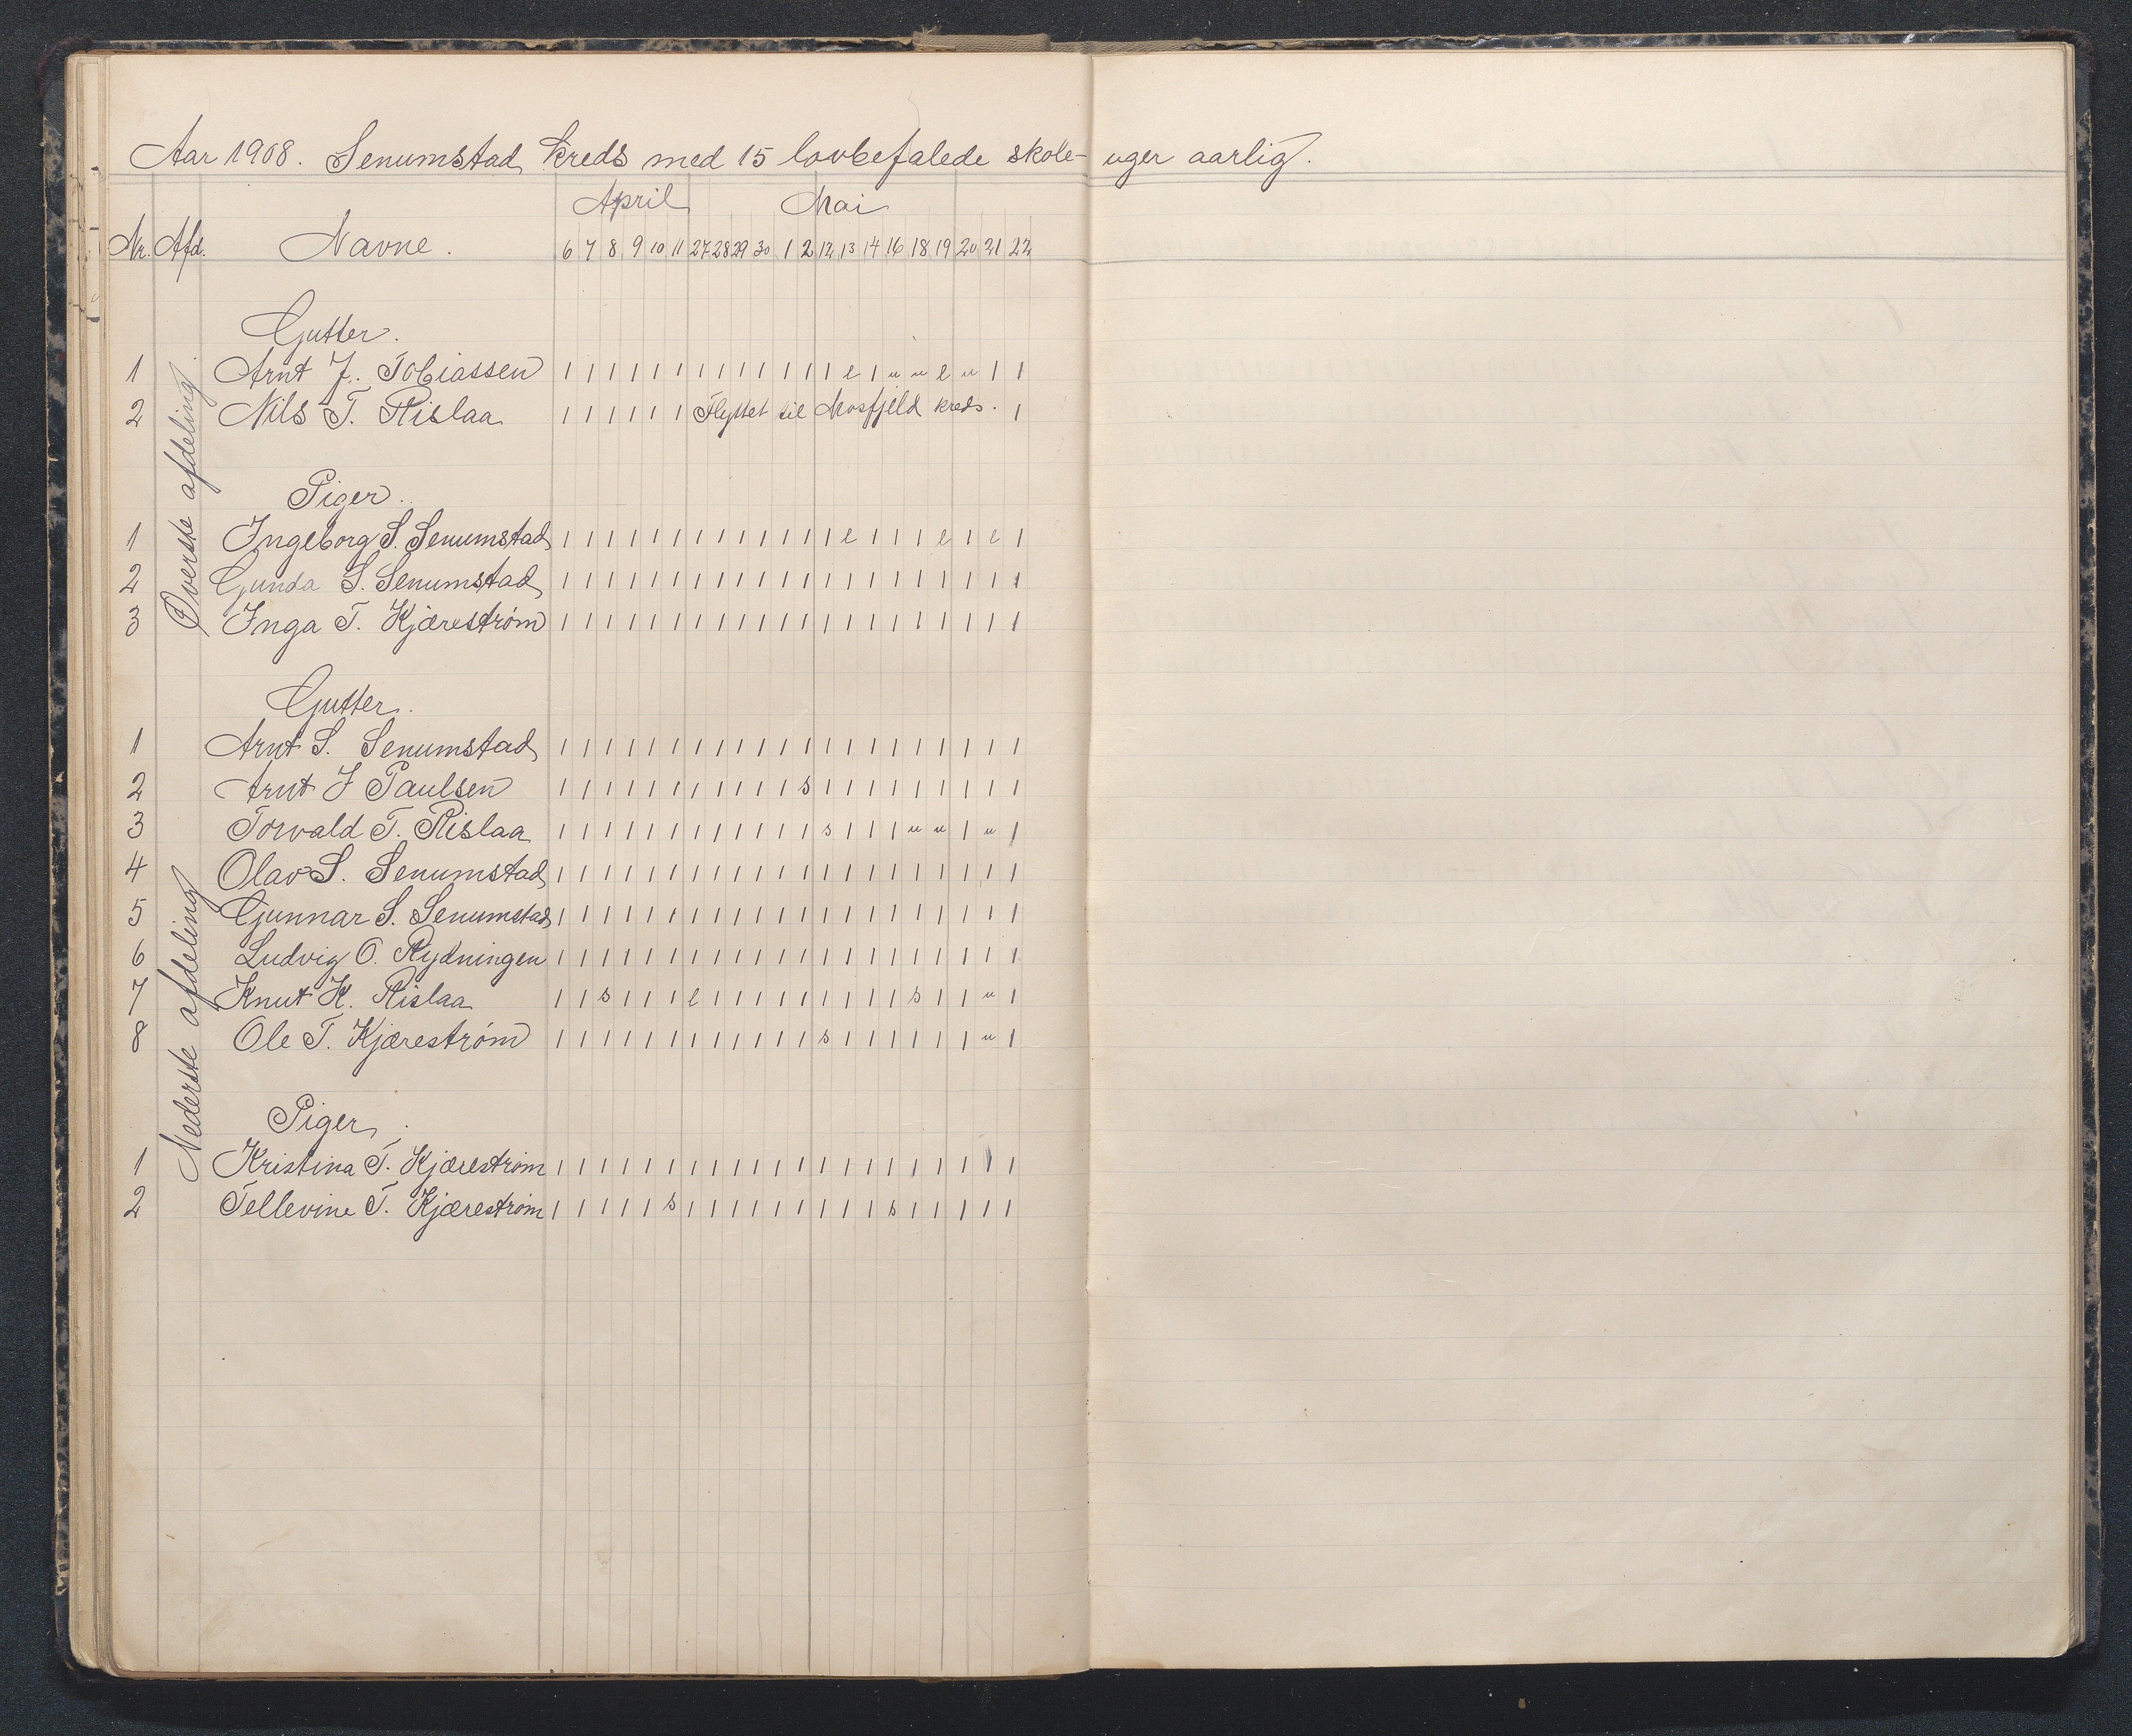 Aar 1908. Senumstad kreds med 15 lovbefalede skole- uger aarlig.
April Mai
Nr. Afd. Navne. 6 7 8 9 10 11 27 28 29 30 1 2 12 13 14 16 18 19 20 21 22
Øverste afdeling
Gutter.
1 Arnt J. Tobiassen 1 1 1 1 1 1 1 1 1 1 1 1 1 e 1 u u e u 1 1
2 Nils T. Rislaa 1 1 1 1 1 1 Flyttet til Mosfjeld kreds. 1
Piger.
1 Ingeborg S. Senumstad 1 1 1 1 1 1 1 1 1 1 1 1 1 e 1 1 1 e 1 e 1
2 Gunda S. Senumstad 1 1 1 1 1 1 1 1 1 1 1 1 1 1 1 1 1 1 1 1 1
3 Inga T. Kjærestrøm 1 1 1 1 1 1 1 1 1 1 1 1 1 1 1 1 1 1 1 1 1
Nederste afdeling
Gutter.
1 Arnt S. Senumstad 1 1 1 1 1 1 1 1 1 1 1 1 1 1 1 1 1 1 1 1 1
2 Arnt J Paulsen 1 1 1 1 1 1 1 1 1 1 1 s 1 1 1 1 1 1 1 1 1
3 Torvald T. Rislaa 1 1 1 1 1 1 1 1 1 1 1 1 s 1 1 1 u u 1 u 1
4 Olav S. Senumstad 1 1 1 1 1 1 1 1 1 1 1 1 1 1 1 1 1 1 1 1 1
5 Gunnar S. Senumstad 1 1 1 1 1 1 1 1 1 1 1 1 1 1 1 1 1 1 1 1 1
6 Ludvig O. Rydningen 1 1 1 1 1 1 1 1 1 1 1 1 1 1 1 1 1 1 1 1 1
7 Knut K. Rislaa 1 1 s 1 1 1 e 1 1 1 1 1 1 1 1 1 s 1 1 u 1
8 Ole T. Kjærestrøm 1 1 1 1 1 1 1 1 1 1 1 1 s 1 1 1 1 1 1 u 1
Piger.
1 Kristina T. Kjærestrøm 1 1 1 1 1 1 1 1 1 1 1 1 1 1 1 1 1 1 1 1 1
2 Tellevine T. Kjærestrøm 1 1 1 1 1 s 1 1 1 1 1 1 1 1 1 s 1 1 1 1 1